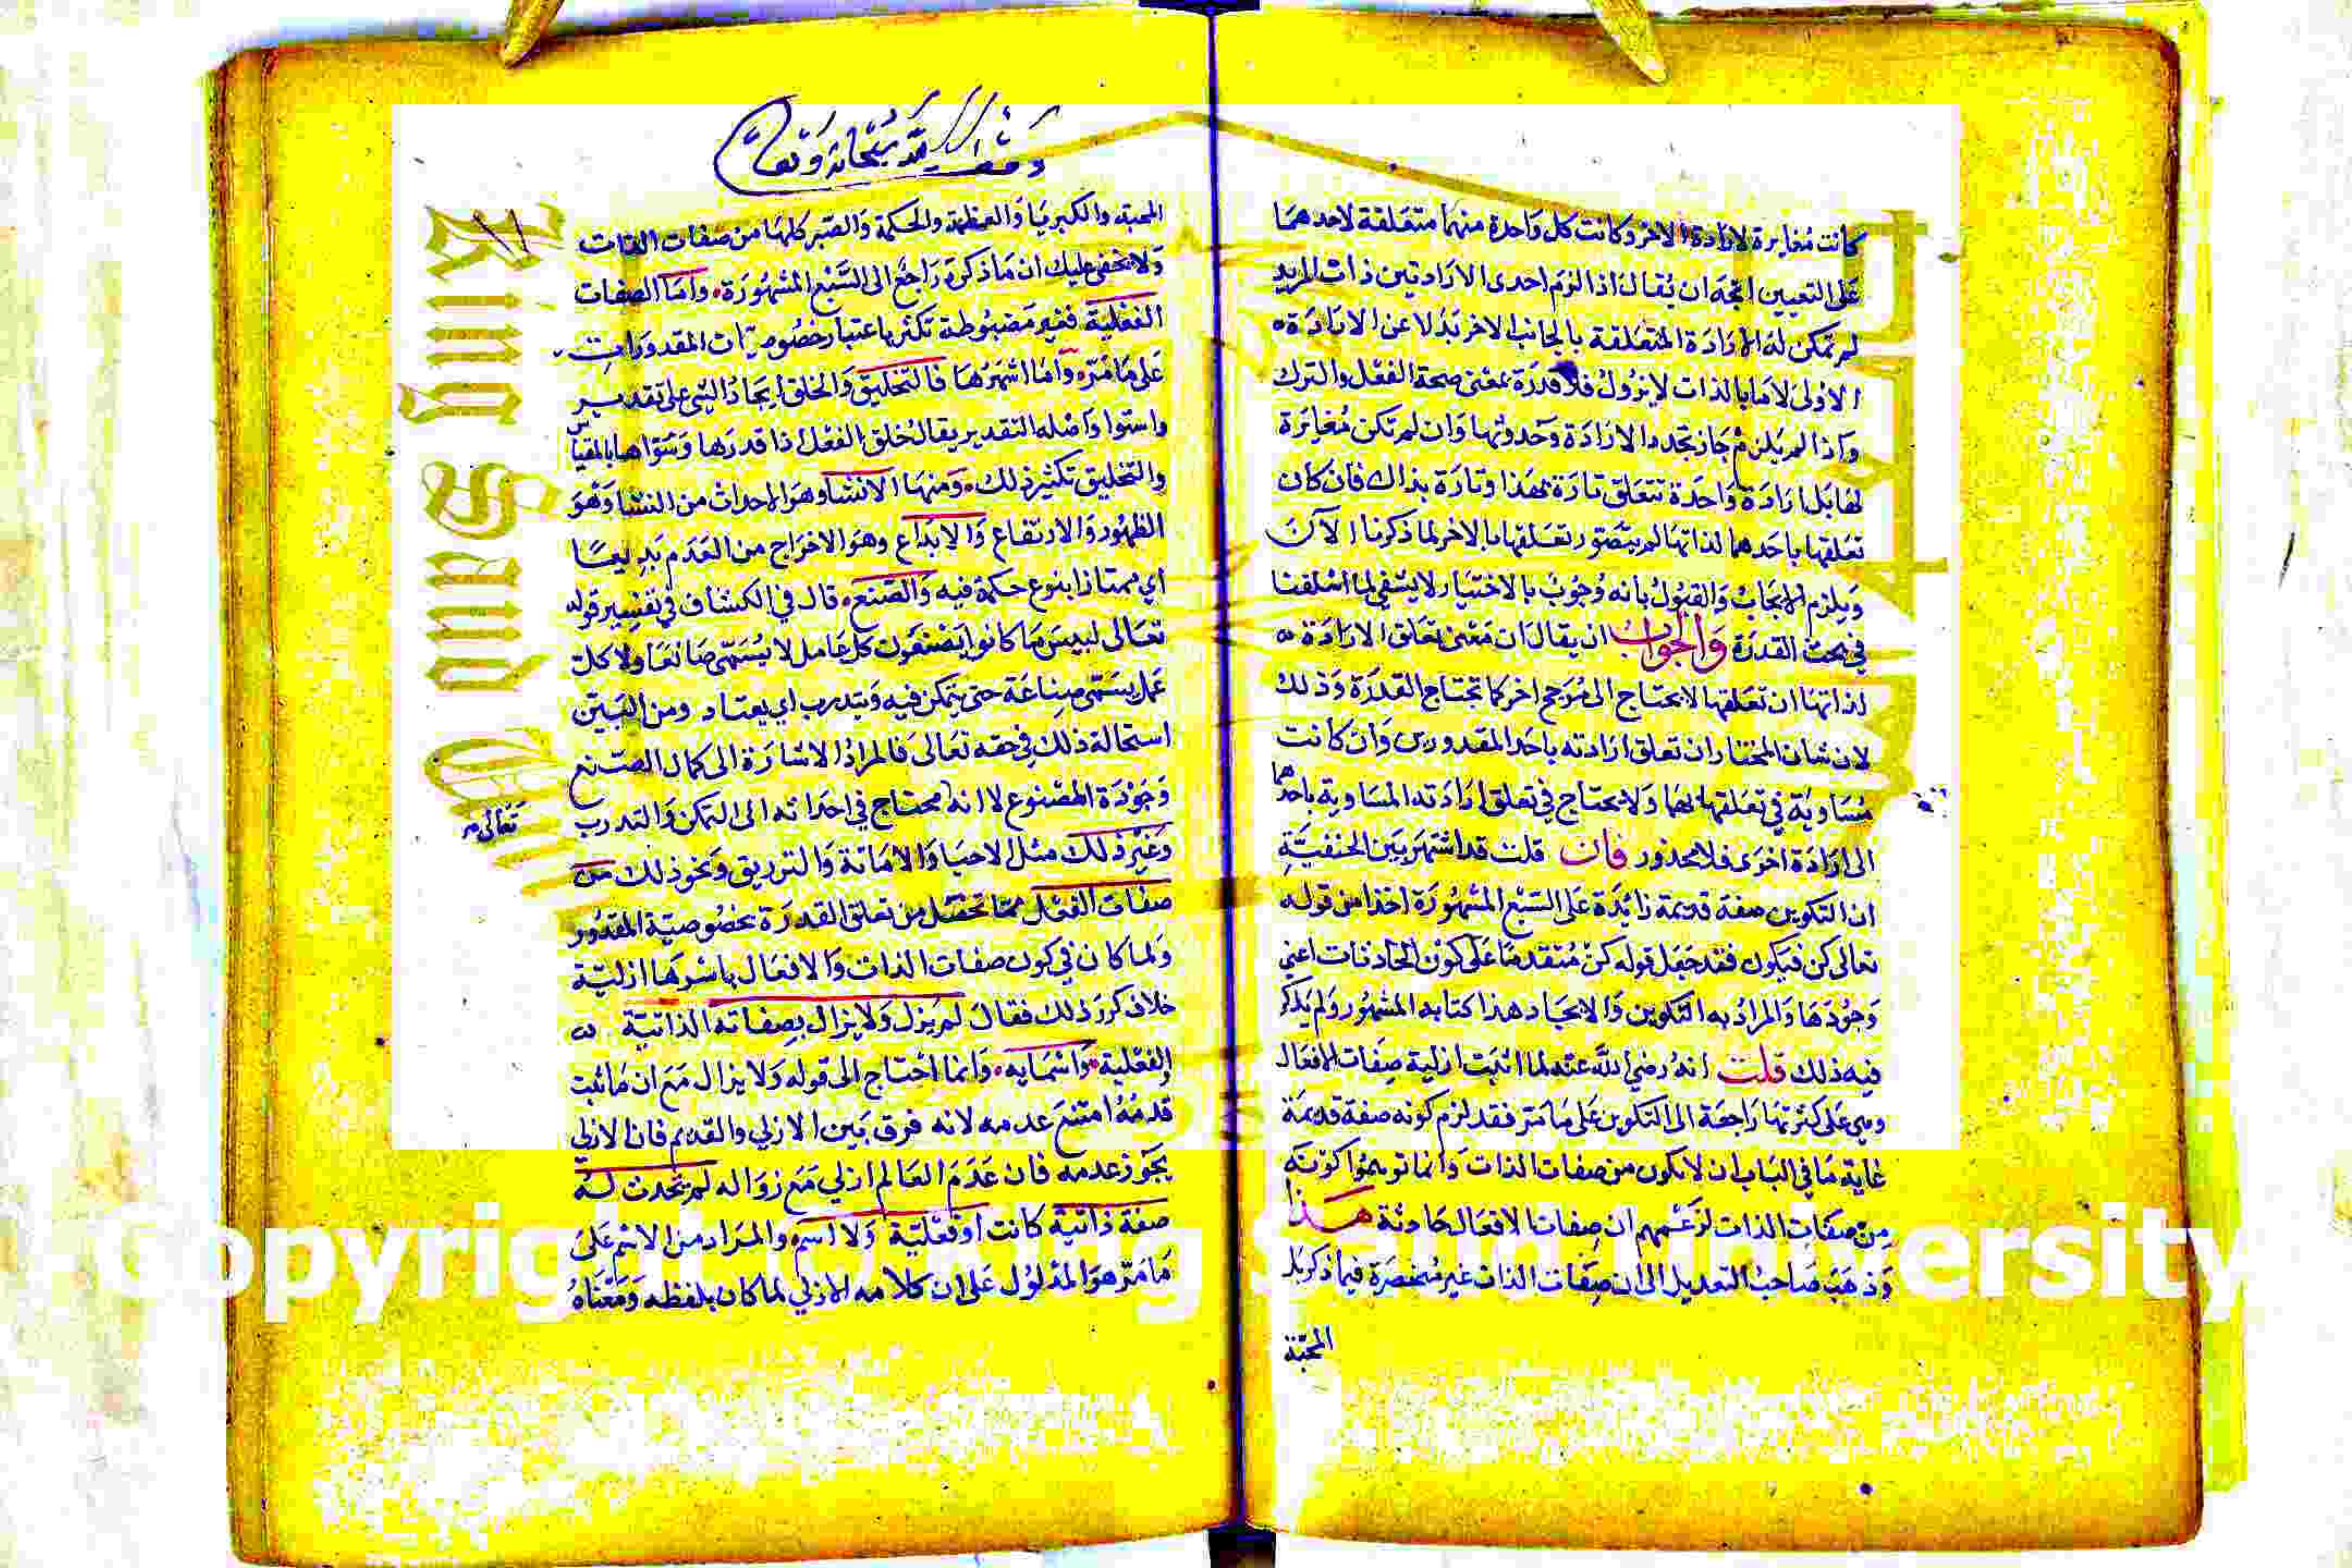 كانت مغايرة لارادة الاخر وكانت كل واحدة منهما متعلقة لاحدهما
على التعيين اتجه ان يقال اذا لزم احدى الارادتين ذات المريد
لم تمكن له الارادة المتعلقة بالجانب الاخر بدلا عن الارادة
الاولى لان ما بالذات لا يزول فلا قدرة بمعنى صحة الفعل والترك
واذا لم يلزم جاز تجدد الارادة وحدوثها وان لم تكن مغايرة
لها بل ارادة واحدة تتعلق تارة بهذا وتارة بذاك فان كان
تعلقها باحدهما لذاتها لم يتصور تعلقها بالاخر لما ذكرنا الآن
ويلزم الايجاب والقول بانه وجوب بالاختيار لا يشفي لما اسلفنا
في بحث القدرة والجواب ان يقال ان معنى تعلق الارادة
لذاتها ان تعلقها لا يحتاج الى مرجح اخر كما تحتاج القدرة وذلك
لان شان المختار ان تعلق ارادته باحد المقدورين وان كانت
مساوية في تعلقها لهما ولا يحتاج في تعلق ارادته المساوية باحدهما
الى ارادة اخرى فلا محذور فان قلت قد اشتهر بين الحنفية
ان التكوين صفة قديمة زائدة على السبع المشهورة اخذا من قوله
تعالى كن فيكون فقد جعل قوله كن متقدما على كون الحادثات اعني
وجودها والمراد به التكوين والايجاد هذا كتابه المشهور ولم يذكر
فيه ذلك قلت انه رضي الله عنه لما اثبت ازلية صفات الافعال
وهي على كثرتها راجعة الى التكوين على ما مر فقد لزم كونه صفة قديمة
غاية ما في الباب ان لا يكون من صفات الذات وانما توهموا كونه
من صفات الذات لزعمهم ان صفات الافعال حادثة هذا
وذهب صاحب التعديل الى ان صفات الذات غير منحصرة فيما ذكر بل
المحبة
وقف لله سبحانه وتعالى
المحبة والكبريا والعظمة والحكمة والصبر كلها من صفات الذات
ولا يخفى عليك ان ما ذكره راجع الى السبع المشهورة واما الصفات
الفعلية فغير مضبوطة تكثر باعتبار خصوصيات المقدورات
على ما مر واما اشهرها فالتخليق والخلق ايجاد الشي على تقدير
واستوا واصله التقدير يقال خلق الفعل اذا قدرها وسواها بالمقياس
والتخليق تكثير ذلك ومنها الانشا وهو الاحداث من النشا وهو
الظهور والارتفاع والابداع وهو الاخراج من العدم بديعا
اي ممتازا بنوع حكمة فيه والصنع قال في الكشاف في تفسير قوله
تعالى لبيس ما كانوا يصنعون كل عامل لا يسمى صانعا ولا كل
عمل يسمى صناعة حتى يتمكن فيه ويتدرب اي يعتاد ومن البين
استحالة ذلك في حقه تعالى فالمراد الاشارة الى كمال الصنع
وجودة المصنوع لا انه محتاج في احداثه الى التمكن والتدرب
تعالى
وغير ذلك مثل الاحيا والاماتة والترزيق ونحو ذلك من
صفات الفعل مما تحصل من تعلق القدرة بخصوصية المقدور
ولما كان في كون صفات الذات والافعال باسرها ازلية
خلاف كرر ذلك فقال لم يزل ولا يزال بصفاته الذاتية
والفعلية واسمايه وانما احتاج الى قوله ولا يزال مع ان ما ثبت
قدمه امتنع عدمه لانه فرق بين الازلي والقديم فان الازلي
يجوز عدمه فان عدم العالم ازلي مع زواله لم يحدث له
صفة ذاتية كانت او فعلية ولا اسم والمراد من الاسم على
ما مر هو المدلول على ان كلامه الازلي لما كان بلفظه ومعناه
Copyright © King Saud University
King Saud University